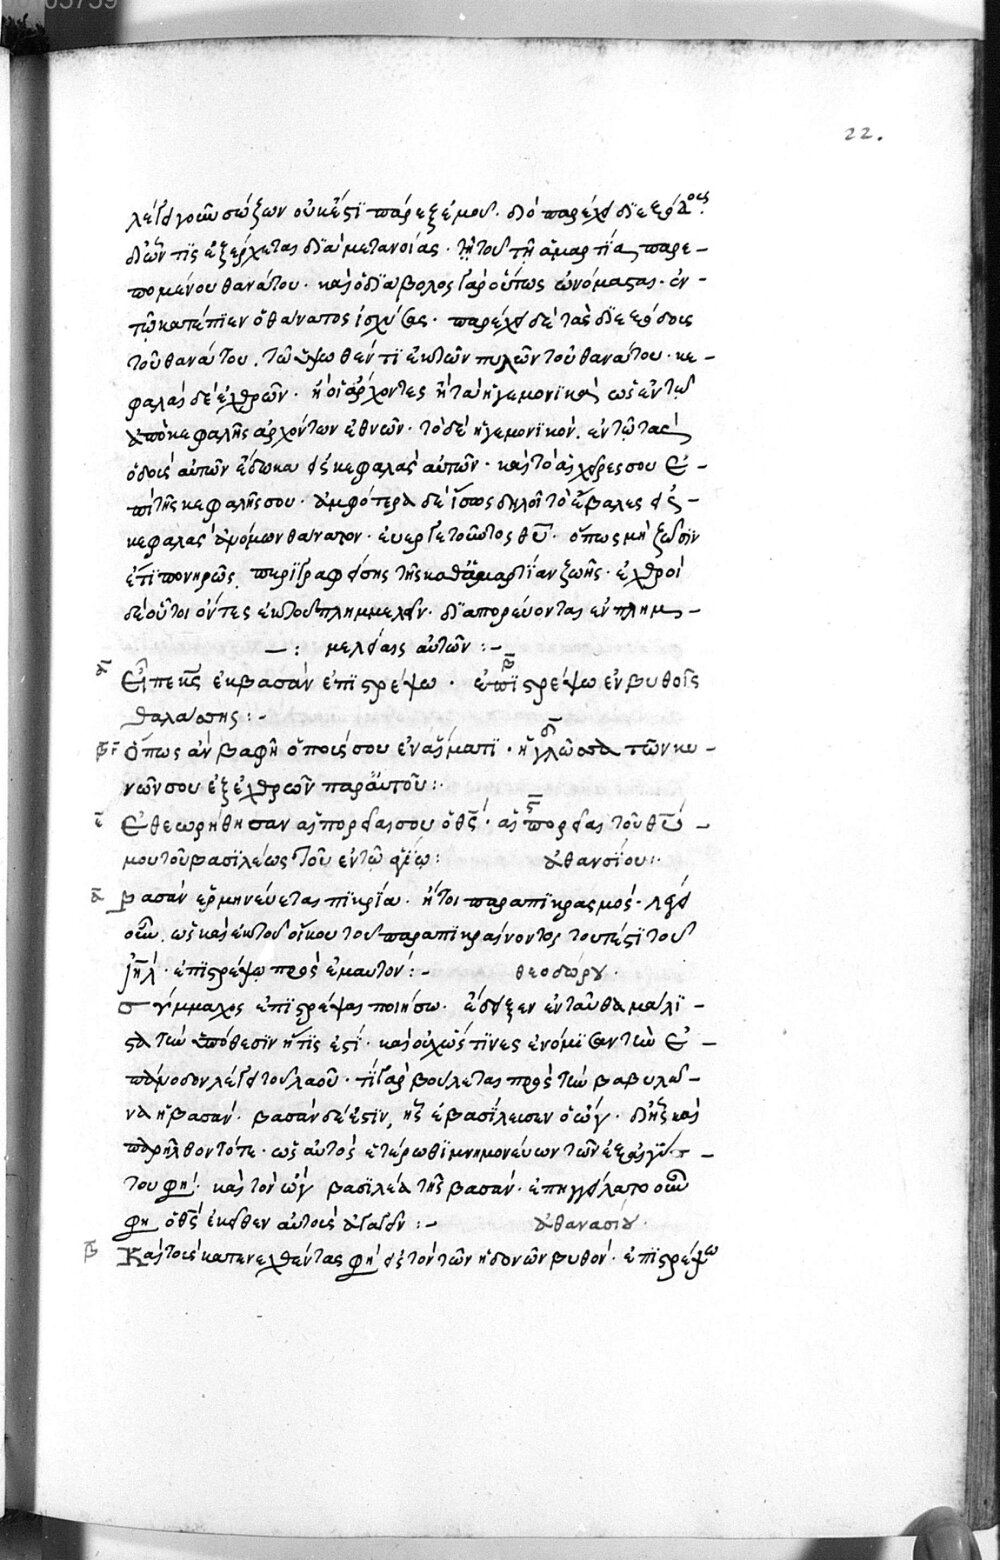 22.
λείᾳ γοῦν σώζων οὐκ ἔστι πάρεξ ἐμοῦ· διὸ παρέχει διεξόδους
δι' ὧν τις ἐξέρχεται διὰ μετανοίας· τοῦ τῇ ἁμαρτίᾳ παρε-
πομένου θανάτου· καὶ ὁ διάβολος γὰρ οὕτως ὠνόμασται· ἐν
τῷ κατέπιεν ὁ θάνατος ἰσχύσας· παρέχει δὲ τὰς διεξόδους
τοῦ θανάτου. τῷ ὑψωθέντι ἐκ τῶν πυλῶν τοῦ θανάτου· κε-
φαλαὶ δὲ ἐχθρῶν· ἢ οἱ ἄρχοντες ἢ τὰ ἡγεμονικὰ ὡς ἐν τῷ
ἀπὸ κεφαλῆς ἀρχόντων ἐθνῶν· τὸ δὲ ἡγεμονικόν. ἐν τῷ τὰς
ὁδοὺς αὐτῶν ἔδωκα εἰς κεφαλὰς αὐτῶν· καὶ τὸ αἱ χεῖρές σου ἐ-
πὶ τῆς κεφαλῆς σου· ἀμφότερα δὲ ἴσως δηλοῖ τὸ ἔβαλες εἰς
κεφαλὰς ἀνόμων θάνατον· εὐεργετοῦντος θῦ· ὅπως μὴ ζῶσιν
ἔτι πονηρῶς περιγραφείσης τῆς καθ' ἁμαρτίαν ζωῆς· ἐχθροὶ
δὲ οὗτοι ὄντες ἐκ τοῦ πλημμελεῖν· διαπορεύονται ἐν πλημ-
μελείαις αὐτῶν :-
α Εἶπε κς ἐκ βασὰν ἐπιστρέψω· β ἐπιστρέψω ἐν βυθοῖς
θαλάσσης :-
γ Ὅπως ἂν βαφῇ ὁ πούς σου ἐν αἵματι· δ ἡ γλῶσσα τῶν κυ-
νῶν σου ἐξ ἐχθρῶν παρ' αὐτοῦ :·
ε Ἐθεωρήθησαν αἱ πορεῖαι σου ὁ θς· ϛ αἱ πορεῖαι τοῦ θῦ
μου τοῦ βασιλέως τοῦ ἐν τῷ ἁγίῳ : ἀθανσίου :·
α Βασὰν ἑρμηνεύεται πικρία· ἤτοι παραπικρασμός· λέγει
οὖν. ὡς καὶ ἐκ τοῦ οἴκου τοῦ παραπικραίνοντος τουτέστι τοῦ
ιηλ· ἐπιστρέψω πρὸς ἐμαυτόν :- θεοδώρου·
σύμμαχος ἐπιστρέψαι ποιήσω. ἔδειξεν ἐνταῦθα μάλι-
στα τὴν ὑπόθεσιν ἥτις ἐστί· καὶ οὐχ ὥς τινες ἐνόμισαν τὴν ἐ-
πάνοδον λέγει τοῦ λαοῦ· τί γὰρ βούλεται πρὸς τὴν βαβυλῶ-
να ἡ βασάν· βασὰν δέ ἐστιν, ἧς ἐβασίλευσεν ὁ ὤγ· δι' ἧς καὶ
παρῆλθον τότε· ὡς αὐτὸς ἑτέρωθι μνημονεύων τῶν ἐξ αἰγύπ-
του φησί· καὶ τὸν ὢγ βασιλέα τῆς βασάν· ἐπηγγείλατο οὖν
φη ὁ θς ἐκεῖθεν αὐτοὺς ἀγαγεῖν :- ἀθανασίου·
β Καὶ τοὺς κατενεχθέντας φησί εἰς τὸν τῶν ἡδονῶν βυθόν· ἐπιστρέψω